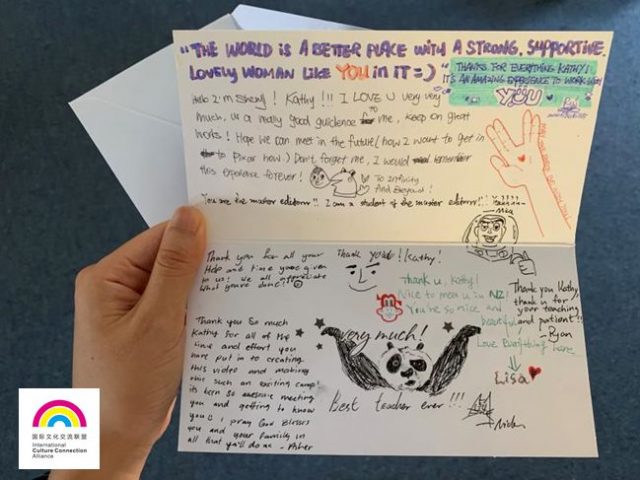 "THE WORLD IS A BETTER PLACE WITH A STRONG, SUPPORTIVE,
LOVELY WOMAN LIKE YOU in IT =)"
THANKS FOR EVERYTHING KATHY!
IT'S AN AMAZING EXPERIENCE TO WORK WITH
YOU
Hello I'm Sheny! Kathy!!! I LOVE U very very
much, u a really good guidence to me, keep on great
works! Hope we can meet in the future (how I want to get in
to Pixar now.) Don't forget me, I would remember
this experience forever!
To Infinity
And Beyond!
You are the master editorrr!! I am a student of the master editorrr!!
Thank you for all your
Help and time you've given
to us! We all appreciate
What you've done!!
Thank you! Kathy!
very much!
Thank u, Kathy!
Nice to meet u in NZ!
You're so nice and
beautiful
Love Everything here
Lisa
Thank you Kathy,
thank u for
your teaching
and patient!!
- Ryan
Thank you so much
Kathy for all of the
time and effort you
have put in to creating
this video and making
this such an exciting camp!
its been so awesome meeting
you and getting to know
you, I pray God blesses
you and your family in
all that ya'll do
Best teacher ever!!!
国际文化交流联盟
International
Culture Connection
Alliance